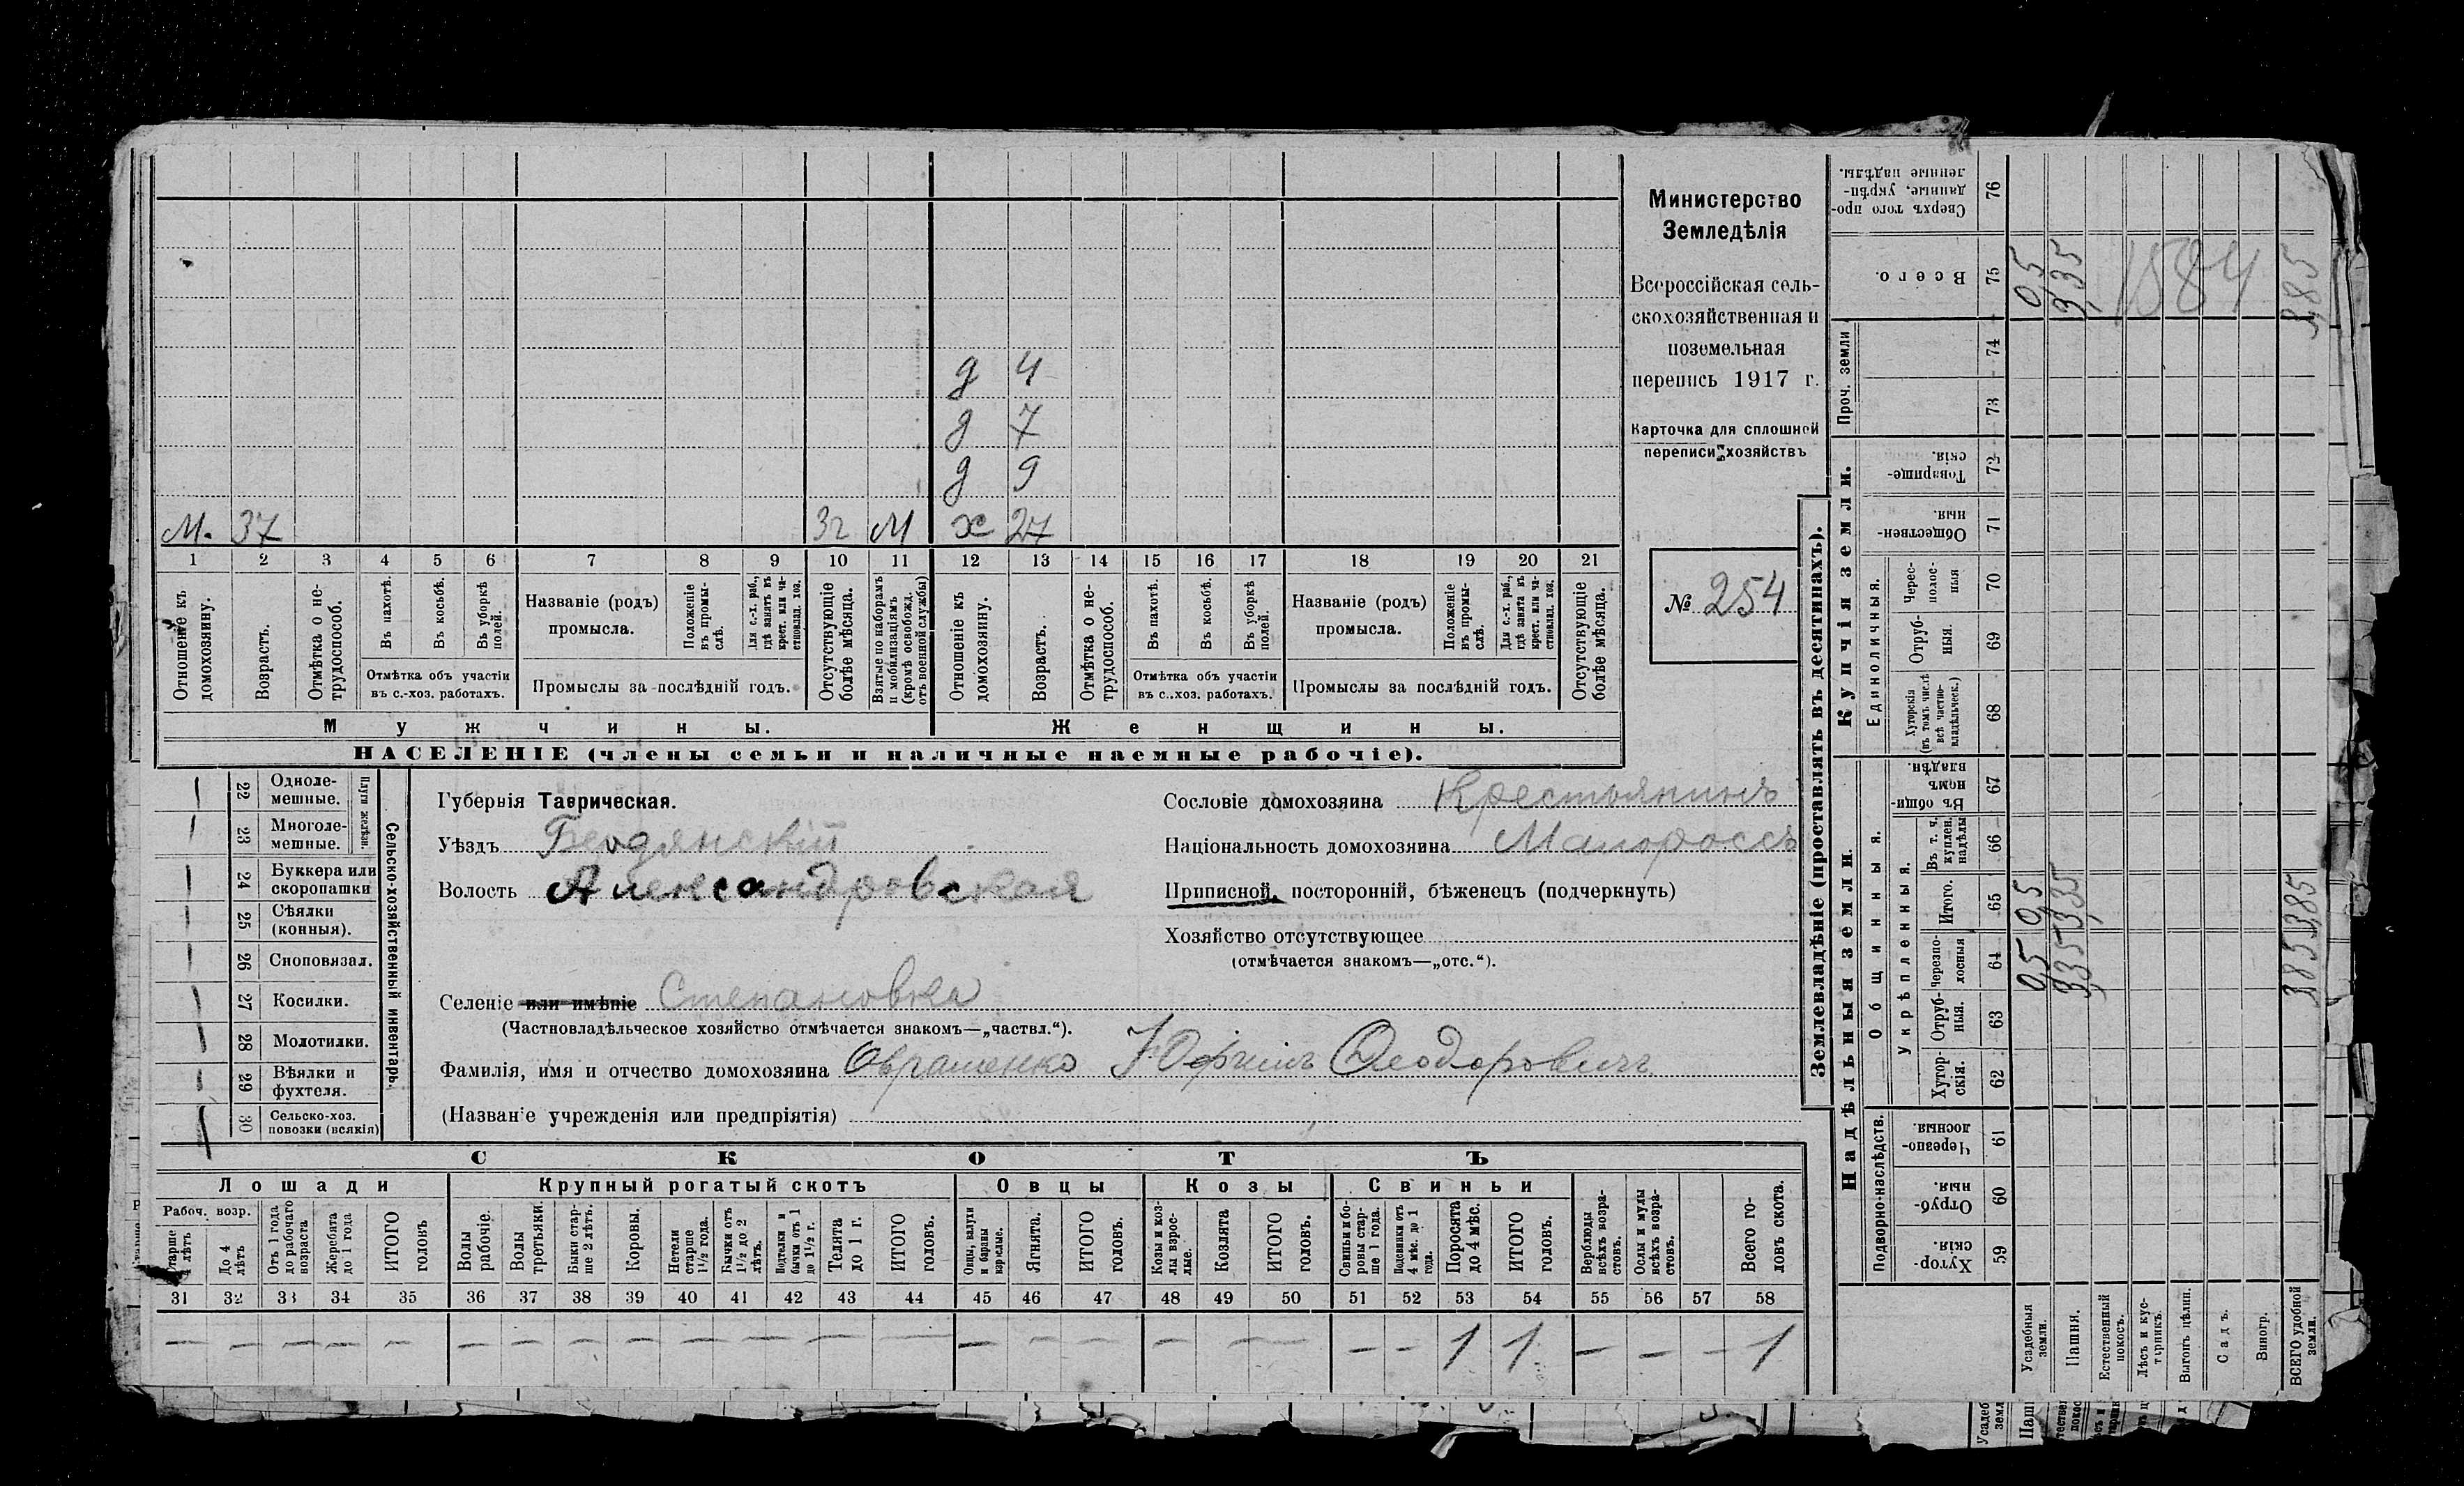 д 4
д 7
д 9
М. 37 3г М х 27
1 2 3 4 5 6 7 8 9 10 11 12 13 14 15 16 17 18 19 20 21
Отношеніе къ домохозяину.
Возрастъ.
Отмѣтка о не-трудоспособ.
Въ пахотѣ.
Въ косьбѣ.
Въ уборкѣ полей.
Отмѣтка объ участіи
въ с.-хоз. работахъ.
Названіе (родъ)
промысла.
Положеніе въ промы-слѣ.
Для с.-х. раб., гдѣ занятъ въ крест. или ча-стновлад. хоз.
Промыслы за послѣдній годъ.
Отсутствующіе болѣе мѣсяца.
Взятые по наборамъ и мобилизаціямъ (кромѣ освобожд. отъ военной службы)
Отношеніе къ домохозяину.
Возрастъ.
Отмѣтка о не-трудоспособ.
Въ пахотѣ.
Въ косьбѣ.
Въ уборкѣ полей.
Отмѣтка объ участіи
въ с.-хоз. работахъ.
Названіе (родъ)
промысла.
Положеніе въ промы-слѣ.
Для с.-х. раб., гдѣ занята въ крест. или ча-стновлад. хоз.
Промыслы за послѣдній годъ.
Отсутствующіе болѣе мѣсяца.
Мужчины. Женщины.
НАСЕЛЕНІЕ (члены семьи и наличные наемные рабочіе).
Министерство
Земледѣлія
Всероссійская сель-
скохозяйственная и
поземельная
перепись 1917 г.
Карточка для сплошной
переписи хозяйствъ
№ 254
22 Одноле-мешные.
23 Многоле-мешные.
Плуги желѣзн.
24 Буккера или скоропашки
25 Сѣялки (конныя).
26 Сноповязал.
27 Косилки.
28 Молотилки.
29 Вѣялки и фухтеля.
30 Сельско-хоз. повозки (всякія)
Сельско-хозяйственный инвентарь.
Губернія Таврическая.
Уѣздъ Бердянскій
Волость Александровская
Селеніе или имѣніе Степановка
(Частновладѣльческое хозяйство отмѣчается знакомъ—„частвл.“).
Фамилія, имя и отчество домохозяина Юфимъ Феодоровичъ
(Названіе учрежденія или предпріятія)
Сословіе домохозяина Крестьянинъ
Національность домохозяина Малороссъ
Приписной, посторонній, бѣженецъ (подчеркнуть)
Хозяйство отсутствующее
(отмѣчается знакомъ—„отс.“).
СКОТЪ
Лошади Крупный рогатый скотъ Овцы Козы Свиньи
Рабоч. возр.
Старше 4 лѣтъ
До 4 лѣтъ
Отъ 1 года до рабочаго возраста
Жеребята до 1 года
ИТОГО головъ
Волы рабочіе.
Волы третьяки.
Быки стар-ше 2 лѣтъ.
Коровы.
Нетели старше 1½ года.
Бычки отъ 1½ до 2 лѣтъ.
Подтелки и бычки отъ 1 до 1½ г.
Телята до 1 г.
ИТОГО головъ.
Овцы, валухи и бараны взрослые.
Ягнята.
ИТОГО головъ.
Козы и коз-лы взрос-лые.
Козлята
ИТОГО головъ.
Свиньи и бо-ровы стар-ше 1 года.
Подсвинки отъ 4 мѣс. до 1 года.
Поросята до 4 мѣс.
ИТОГО головъ.
Верблюды всѣхъ возра-стовъ.
Ослы и мулы всѣхъ возра-стовъ.
Всего го-ловъ скота.
31 32 33 34 35 36 37 38 39 40 41 42 43 44 45 46 47 48 49 50 51 52 53 54 55 56 57 58
— — — — — — — — — — — — — — — — — — — — — 1 1 — — — 1
Землевладѣніе (проставлять въ десятинахъ).
Надѣльныя земли.
Купчія земли.
Проч. земли
Подворно-наслѣдств.
Общинныя.
Укрѣпленныя.
Единоличныя.
Хутор-скія. 59
Отруб-ныя. 60
Черезпо-лосныя 61
Хутор-скія. 62
Отруб-ныя. 63
черезпо-лосныя 64
Итого. 65
Въ т. ч. куплен. надѣлы 66
Въ общин-номъ владѣн. 67
Хуторскія (въ томъ числѣ всѣ частно-владѣльческ.) 68
Отруб-ныя. 69
Черес-полос-ныя 70
Обществен-ныя. 71
Товарище-скія. 72
73
74
Всего. 75
Сверхъ того про-данные, укрѣп-ленные надѣлы. 76
Усадебныя земли. 0,5 0,5 0,5
Пашня. 3,35 3,35 3,35
Естественный покосъ.
Лѣсъ и кус-тарникъ.
Выгонъ цѣлин.
Садъ.
Виногр.
ВСЕГО удобной земли. 3,85 3,85 3,85
1584